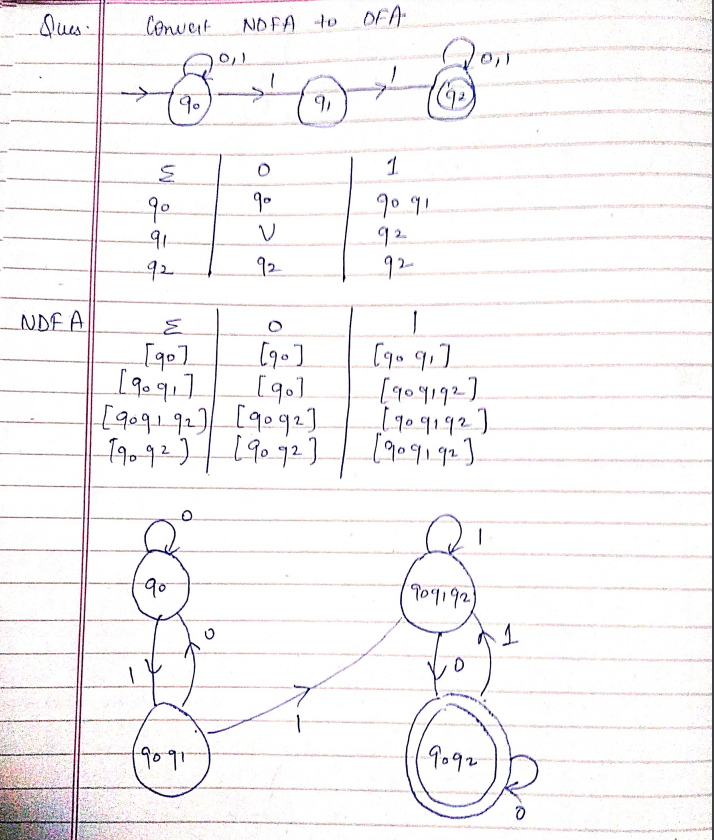 Ques. Convert NDFA to DFA
0,1 0,1
1 1
q0 q1 q2
Σ 0 1
q0 q0 q0 q1
q1 U q2
q2 q2 q2
NDFA Σ 0 1
[q0] [q0] [q0 q1]
[q0 q1] [q0] [q0 q1 q2]
[q0 q1 q2] [q0 q2] [q0 q1 q2]
[q0 q2] [q0 q2] [q0 q1 q2]
0 1
q0 q0 q1 q2
1 0 0 1
1
q0 q1 q0 q2
0